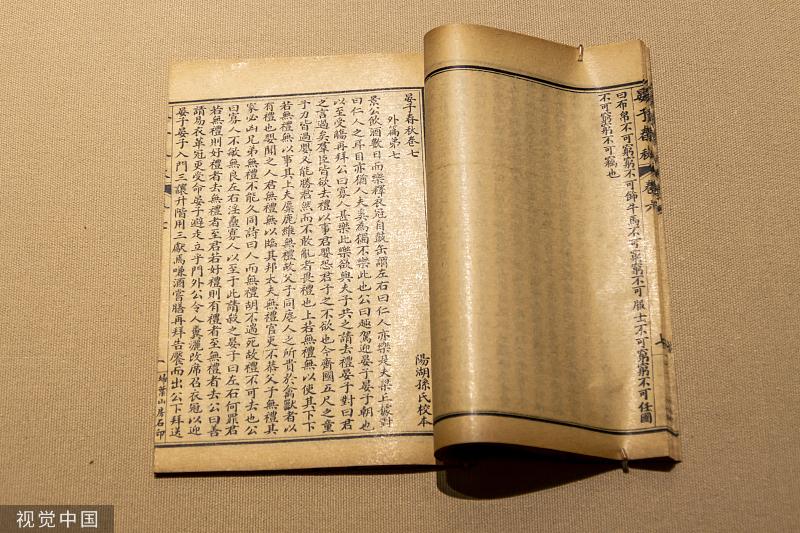 晏子春秋 卷六
曰布帛不可窮窮不可飾牛馬不可窮窮不可服士不可窮窮不可任國
不可窮窮不可竊也
晏子春秋卷七
外篇第七 陽湖孫氏校本
景公飲酒數日而樂釋衣冠自鼓缶謂左右曰仁人亦樂是夫梁丘據對
曰仁人之耳目亦猶人夫奚為獨不樂此也公曰趣駕迎晏子晏子朝也
以至受觴再拜公曰寡人甚樂此樂欲與夫子共之請去禮晏子對曰君
之言過矣羣臣皆欲去禮以事君嬰恐君子之不欲也今齊國五尺之童
子力皆過嬰又能勝君然而不敢亂者畏禮也上若無禮無以使其下下
若無禮無以事其上夫麋鹿維無禮故父子同麀人之所貴於禽獸者以
有禮也嬰聞之人君無禮無以臨其邦大夫無禮官吏不恭父子無禮其
家必凶兄弟無禮不能久同詩曰人而無禮胡不遄死故禮不可去也公
曰寡人不敏無良左右淫蠱寡人以至于此請殺之晏子曰左右何罪君
若無禮則好禮者去無禮者至君若好禮則有禮者至無禮者去公曰善
請易衣革冠更受命晏子避走立乎門外公令人糞灑改席召衣冠以迎
晏子晏子入門三讓升階用三獻焉嗛酒嘗膳再拜告饜而出公下拜送
一 埽葉山房石印
视觉中国